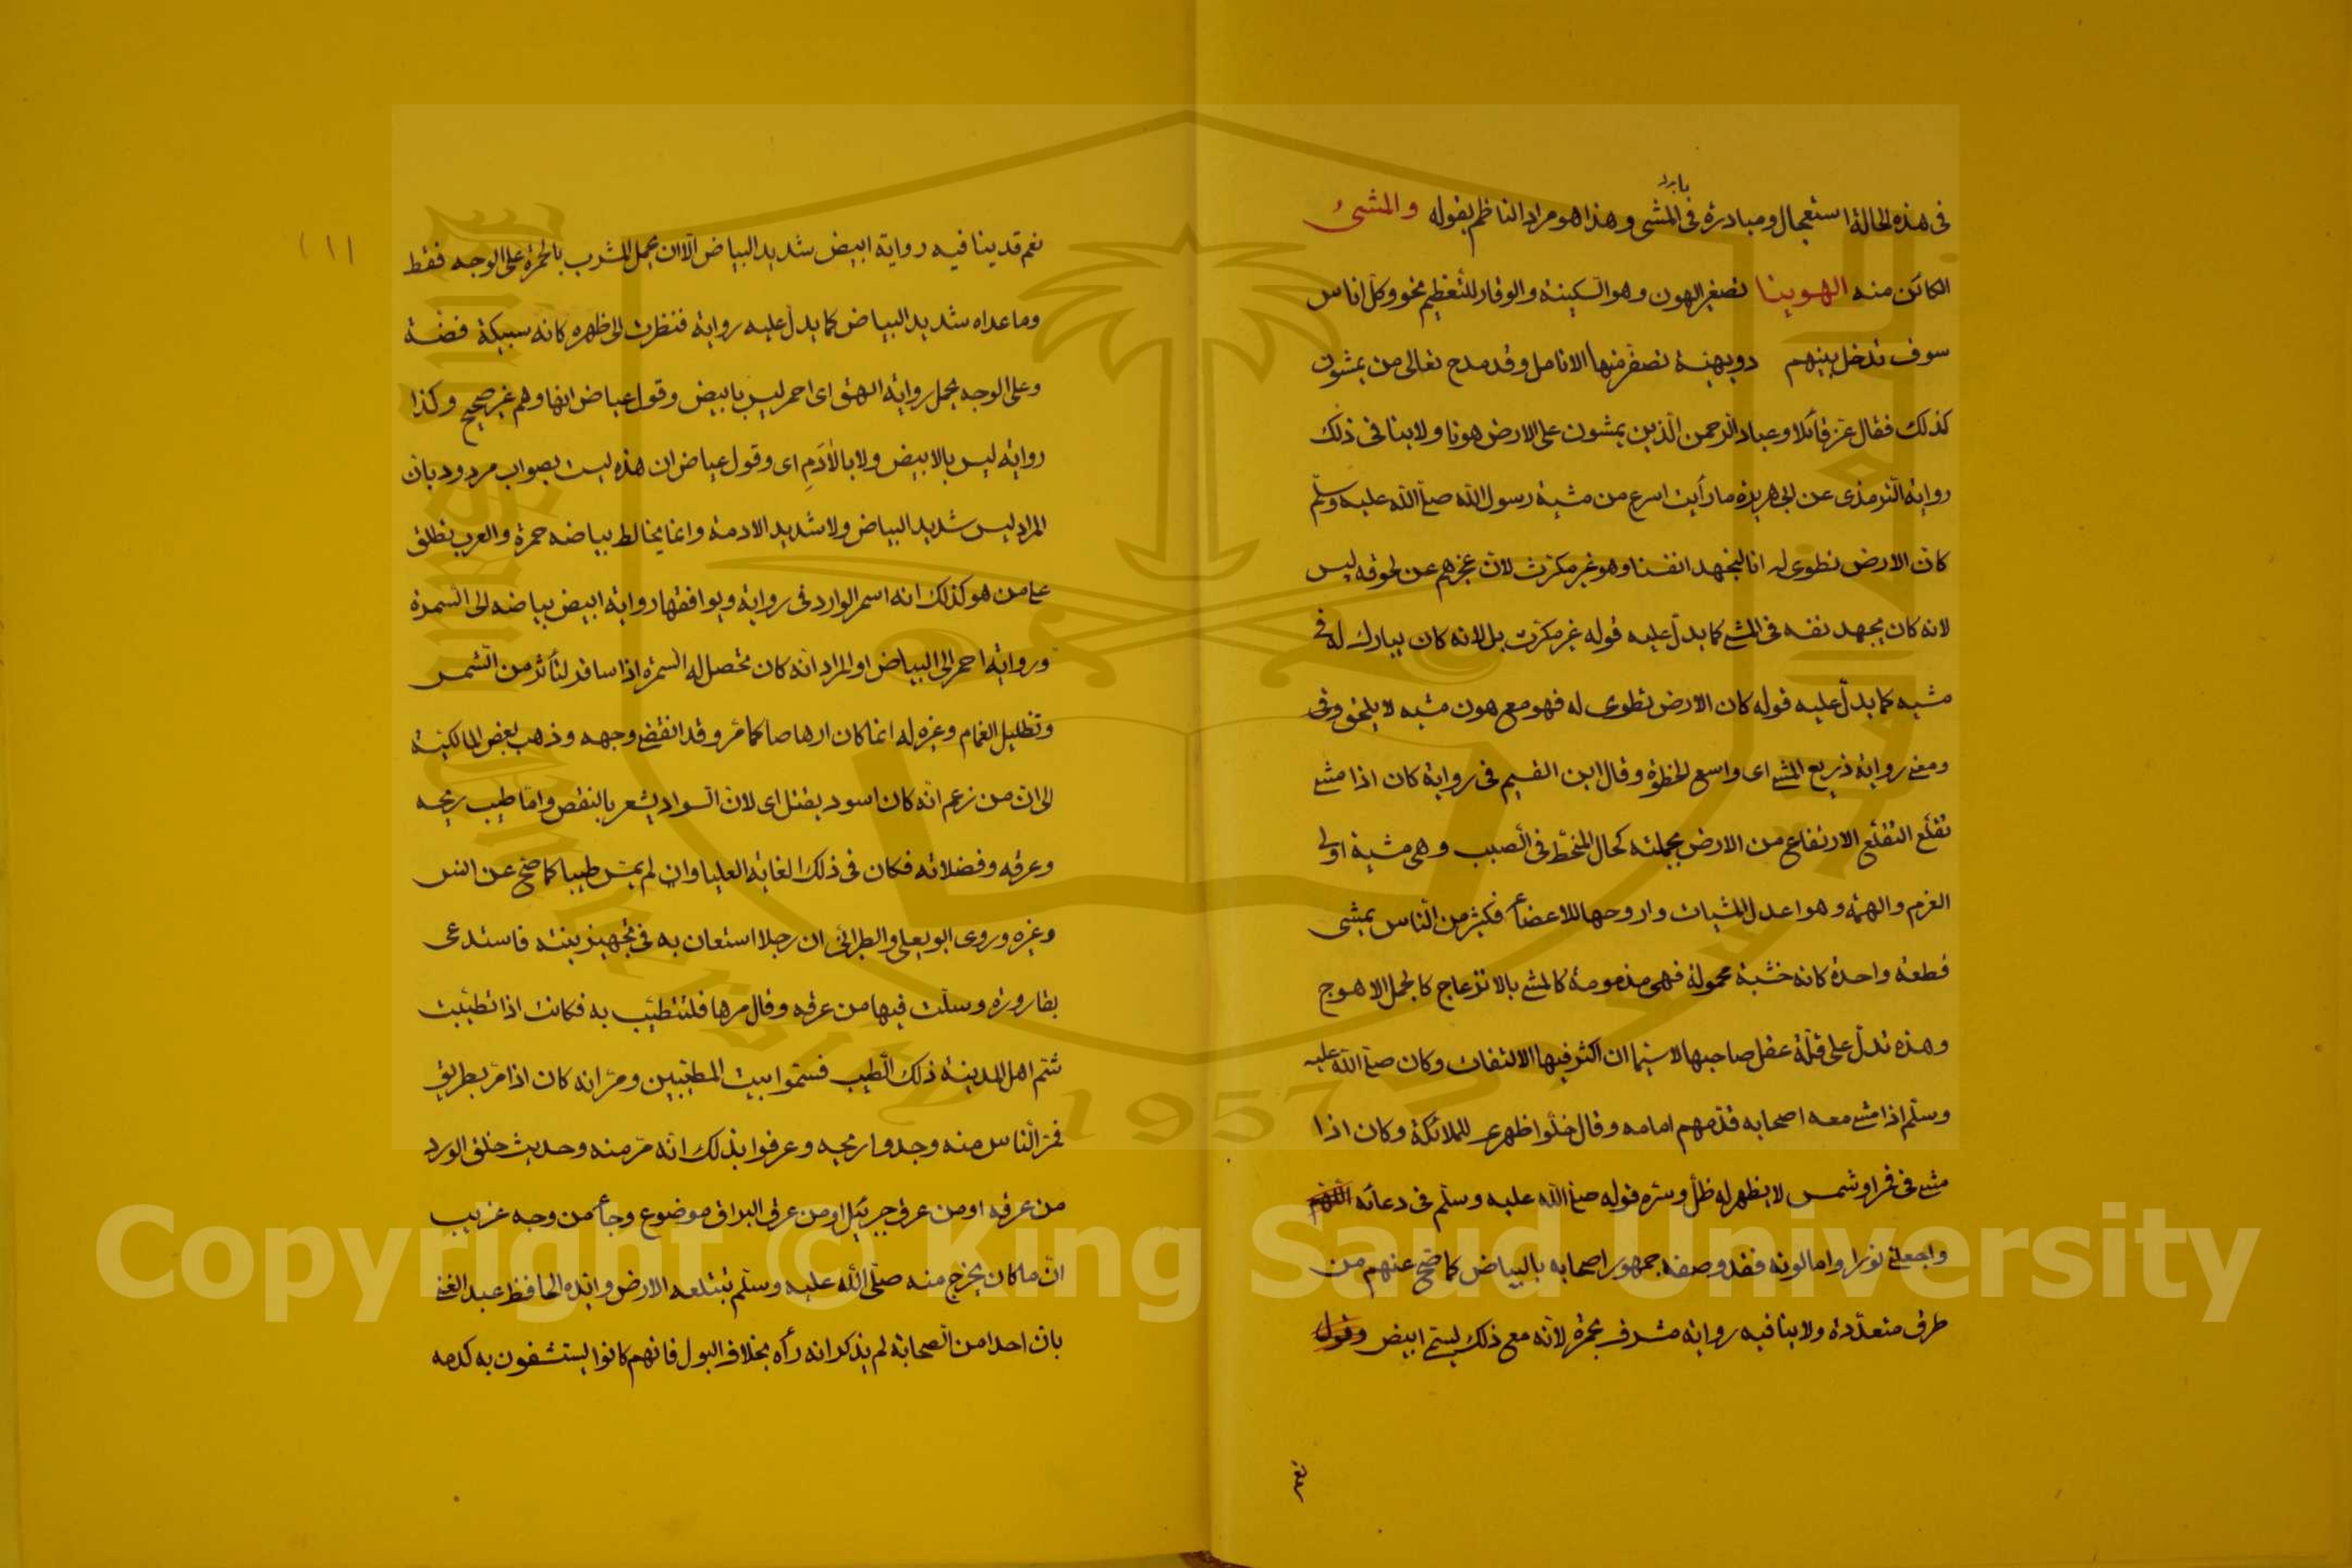 بابرد
فى هذه الحالة استعجال ومبادرة فى المشى وهذا هو مراد الناظم بقوله والمشىُ
الكائن منه الهوينا تصغير الهون وهو السكينة والوقار للتعظيم نحو وكل اناس
سوف تدخل بينهم دويهية تصفر منها الانامل وقد مدح تعالى من يمشون
كذلك فقال عزّ قائلا وعباد الرحمن الّذين يمشون على الارض هونا ولا ينافى ذلك
رواية الترمذى عن ابى هريرة ما رأيت اسرع من مشية رسول الله صلى الله عليه وسلّم
كان الارض تطوى له انا لنجهد انفسنا وهو غير مكترث لان عجزهم عن لحوقه ليس
لانه كان يجهد نفسه فى المشى كما يدلّ عليه قوله غير مكترث بل لانه كان يبارك له فى
مشيه كما يدلّ عليه قوله كان الارض تطوى له فهو مع هون مشيه لا يلحق وفى
ومعنى رواية ذريع المشى اى واسع الخطوة وقال ابن القيم فى رواية كان اذا مشى
تقلّع التقلّع الارتفاع من الارض بجملته كحال المنحطّ فى الصبب وهى مشية اولى
العزم والهمة وهو اعدل المشيات واروحها للاعضاء فكثير من النّاس يمشى
قطعة واحدة كانه خشبة محمولة فهى مذمومة كالمشى بالانزعاج كالجمل الاهوج
وهذه تدلّ على قلّة عقل صاحبها لا سيّما ان اكثر فيها الالتفات وكان صلى الله عليه
وسلّم اذا مشى معه اصحابه قدّمهم امامه وقال خلّوا ظهرى للملائكة وكان اذا
مشى فى قمر او شمس لا يظهر له ظلّ وسرّه قوله صلى الله عليه وسلّم فى دعائه اللّهم
واجعلنى نورا واما لونه فقد وصفه جمهور اصحابه بالبياض كما صحّ عنهم من
طرق متعدّدة ولا ينافيه رواية مشرف بحمرة لانّه مع ذلك يسمّى ابيض وقول
نعم
(١١
نعم قد ينافيه رواية ابيض شديد البياض الّا ان يحمل المشرب بالحمرة على الوجه فقط
وما عداه شديد البياض كما يدلّ عليه رواية فنظرت الى ظهره كانه سبيكة فضّة
وعلى الوجه يحمل رواية امهق اى احمر ليس بابيض وقول عياض انها وهم غير صحيح وكذا
رواية ليس بالابيض ولا بالآدَمِ اى وقول عياض ان هذه ليست بصواب مردود بان
المراد ليس شديد البياض ولا شديد الادمة وانما يخالط بياضه حمرة والعرب تطلق
على من هو كذلك انه اسمر الوارد فى رواية ويوافقها رواية ابيض بياضه الى السّمرة
ورواية احمر الى البياض او المراد انّه كان تحصل له السمرة اذا سافر لتأثر من الشّمس
وتظليل الغمام وغيره له انما كان ارهاصا كما مرّ وقد انقضى وجهه وذهب بعض المالكيّة
الى ان من زعم انّه كان اسود يقتل اى لانّ السّواد يشعر بالنقص وامّا طيب ريحه
وعرقه وفضلاته فكان فى ذلك الغاية العليا وان لم يمسّ طيبا كما صحّ عن انس
وغيره وروى ابو يعلى والطبرانى ان رجلا استعان به فى تجهيز بنته فاستدعى
بقارورة وسلّت فيها من عرقه وقال مرها فلتتطيّب به فكانت اذا تطيّبت
شمّ اهل المدينة ذلك الطّيب فسمّوا بيت المطيّبين ومرّ انه كان اذا مرّ بطريق
فمرّ النّاس منه وجدوا ريحه وعرفوا بذلك انّه مرّ منه وحديث خلق الورد
من عرقه او من عرق جبرئيل او من عرق البراق موضوع وجاء من وجه غريب
ان ما كان يخرج منه صلّى الله عليه وسلّم تبتلعه الارض وايّده الحافظ عبد الغنى
بان احدا من الصّحابة لم يذكر انه رآه بخلاف البول فانهم كانوا يستشفون به كدمه
Copyright © King Saud University
King Saud University
1957